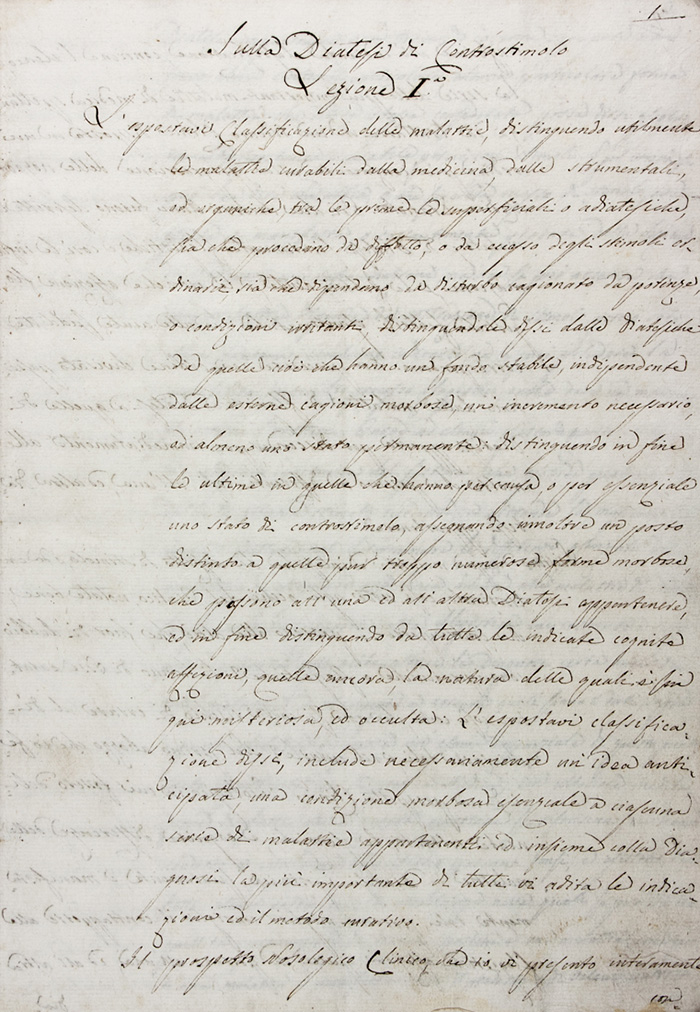 1.
Sulla Diatesi di Controstimolo
Lezione I.a
L'espostavi Classificazione delle malattie, distinguendo utilmente
le malattie curabili dalla medicina, dalle strumentali,
ed organiche tra le prime le superficiali o adiatesiche,
sia che procedano da diffetto, o da eccesso degli stimoli or-
dinarii sia che dipendano da disturbo cagionato da potenze,
o condizioni irritanti, distinguendole dissi dalle Diatesiche
die quelle cioè che hanno un fondo stabile, indipendente
dalle esterne cagioni morbose, un incremento necessario,
od almeno uno stato permanente: distinguendo in fine
le ultime in quelle che hanno per causa, o per essenziale
uno stato di controstimolo, assegnando inoltre un posto
distinto a quelle pur troppo numerose forme morbose,
che possono all'una ed all'altra Diatesi appartenere,
ed in fine distinguendo da tutte le indicate cognite
affezioni, quelle ancora, la natura delle quali è fin
qui misteriosa, ed occulta: L'espostavi classifica-
zione dissi, include necessariamente un'idea anti-
cipata, una condizione morbosa essenziale a ciascuna
serie di malattie appartenenti ed insieme colla Dia-
gnosi la più importante di tutte vi adita le indica-
zioni ed il metodo curativo.
Il prospetto Nosologico Clinico, che io vi presento interamente